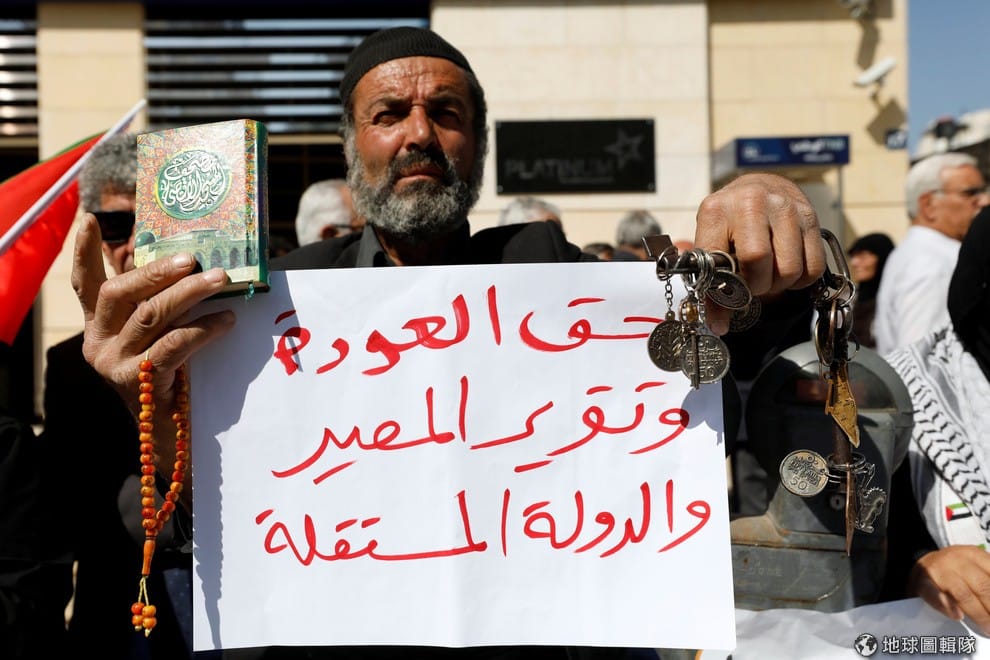 حق العودة
وتقرير المصير
والدولة المستقلة
مصحف
المسجد الأقصى
PLATINUM
地球圖輯隊